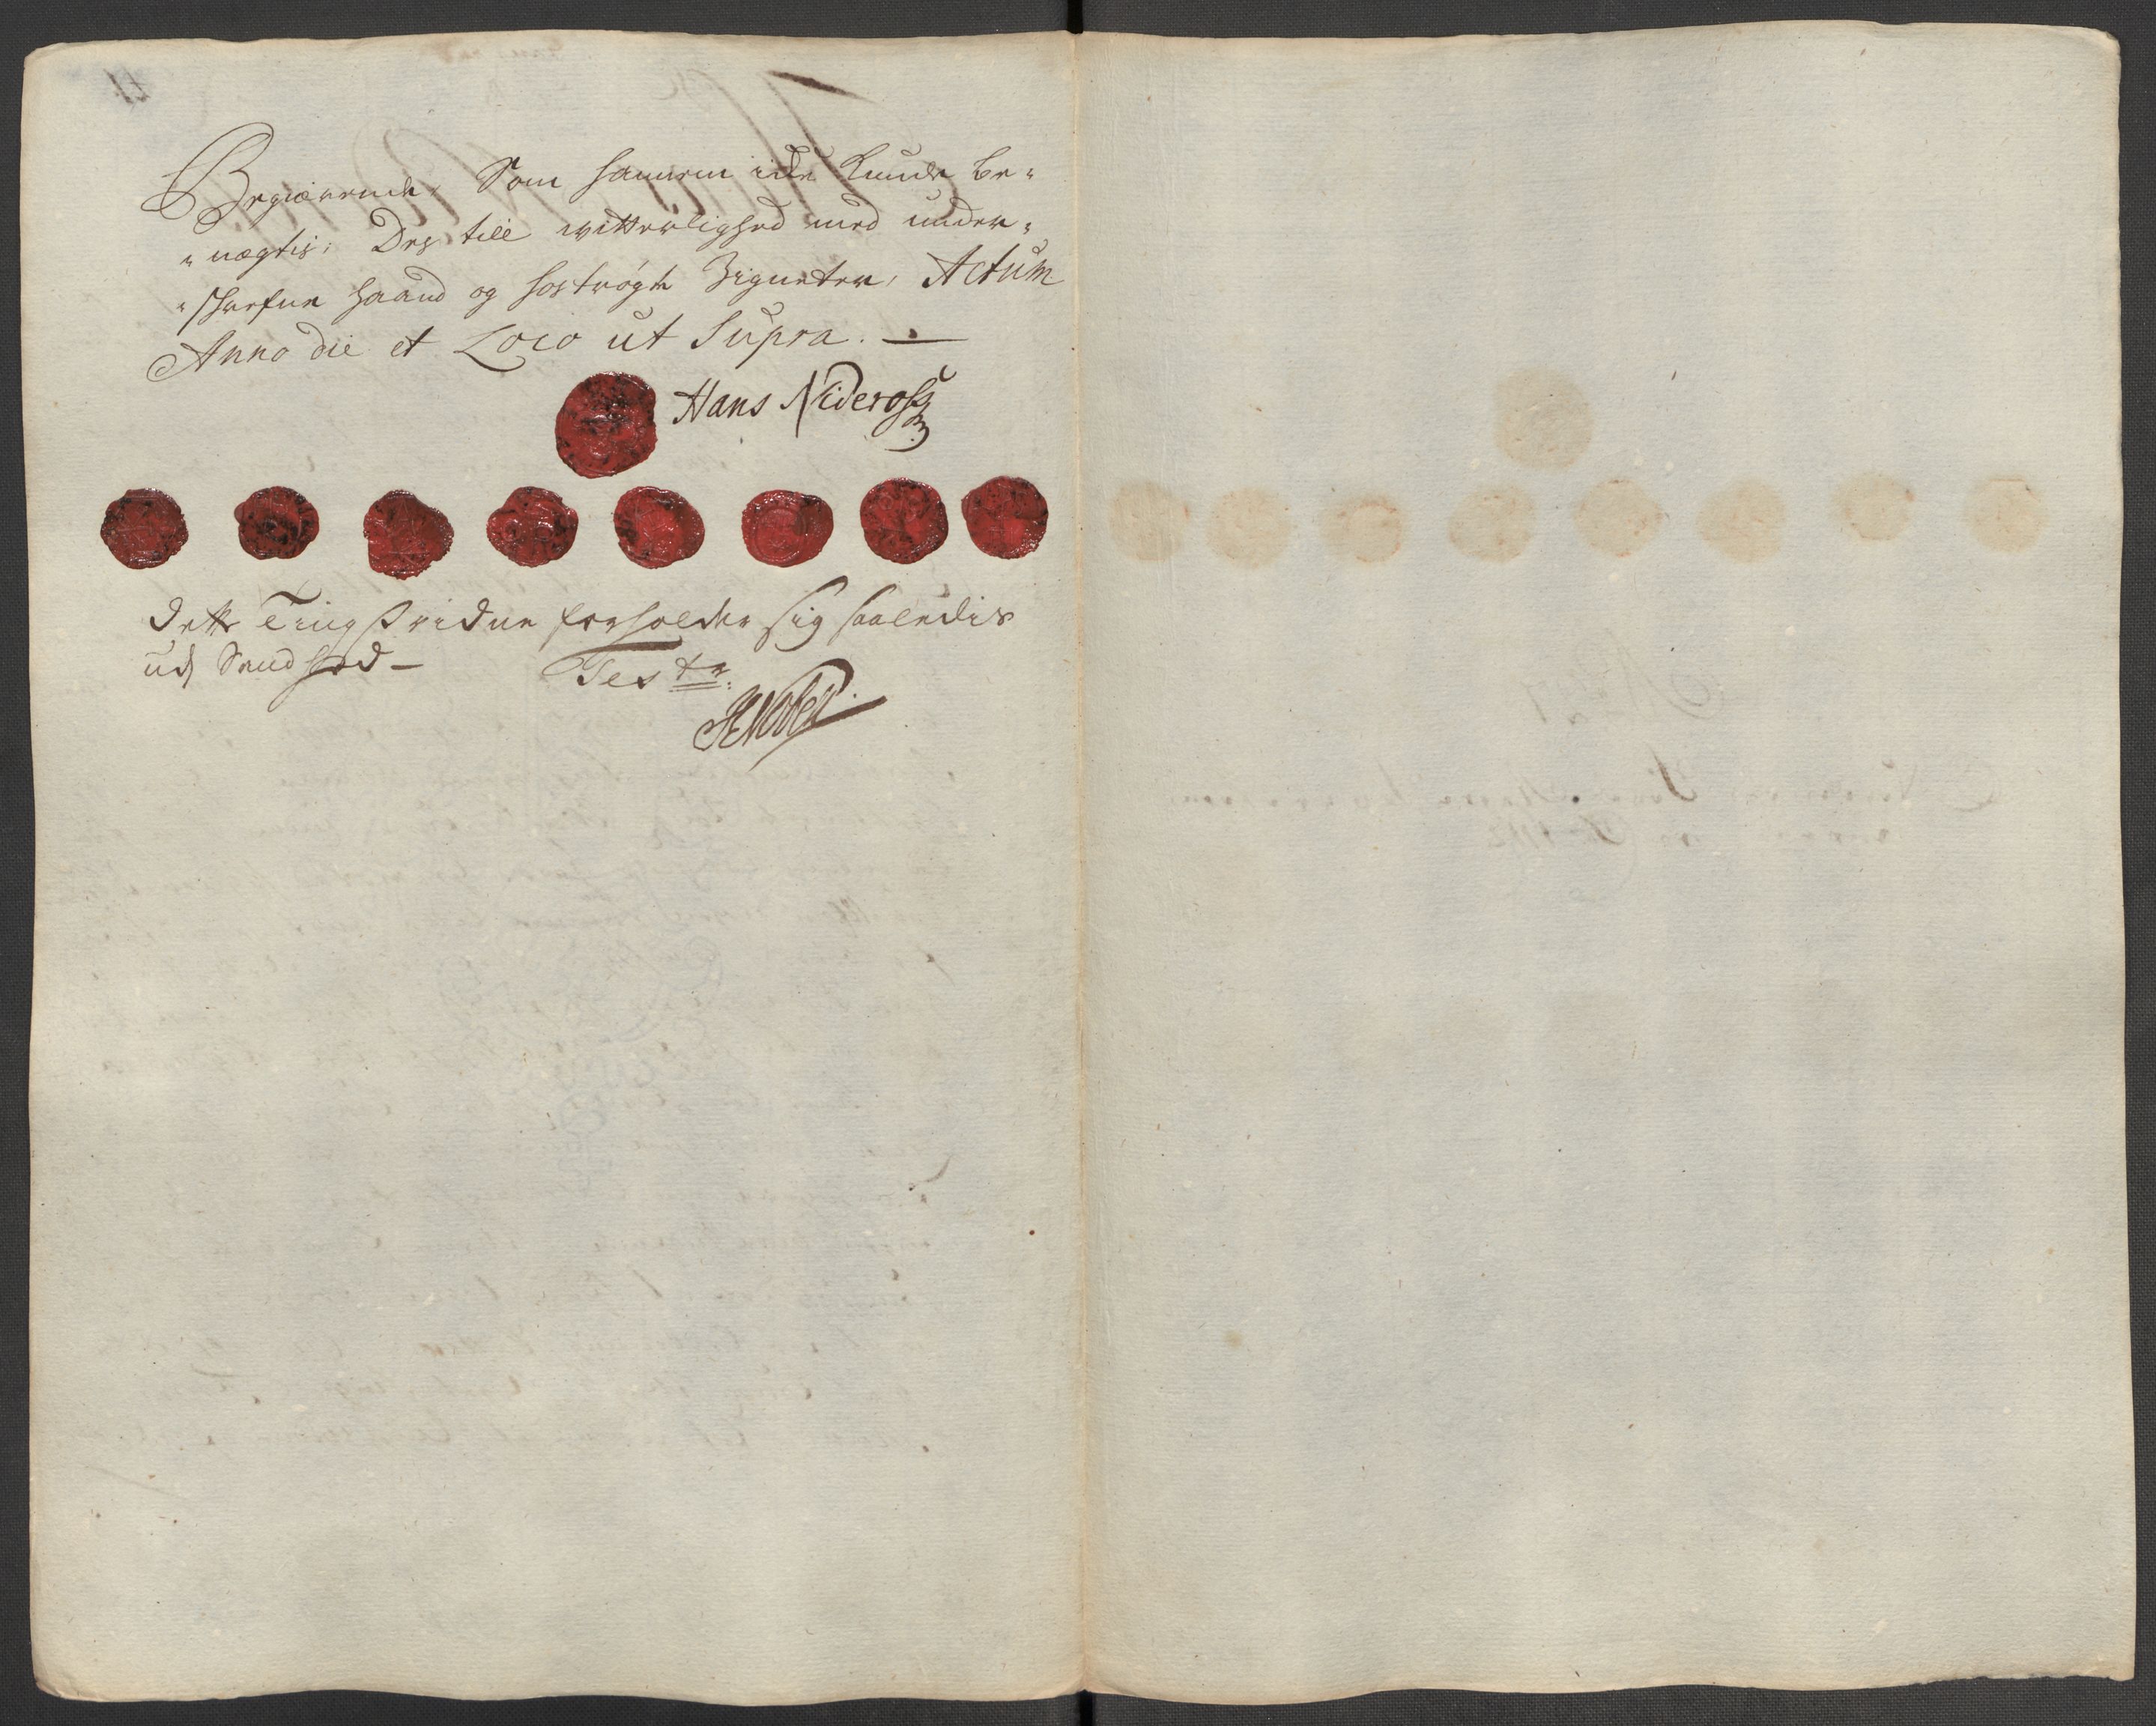 Begiærende, Som hannem icke Kunde be„
„nægtis; Des till witterlighed med under„
„schrefne haand og hostrøgte Zigneter, Actum
Anno die et Loco ut Supra. —
Hans Nideross
dette Tingswidne forholder sig saaledis
udj Sandhed — Teste: